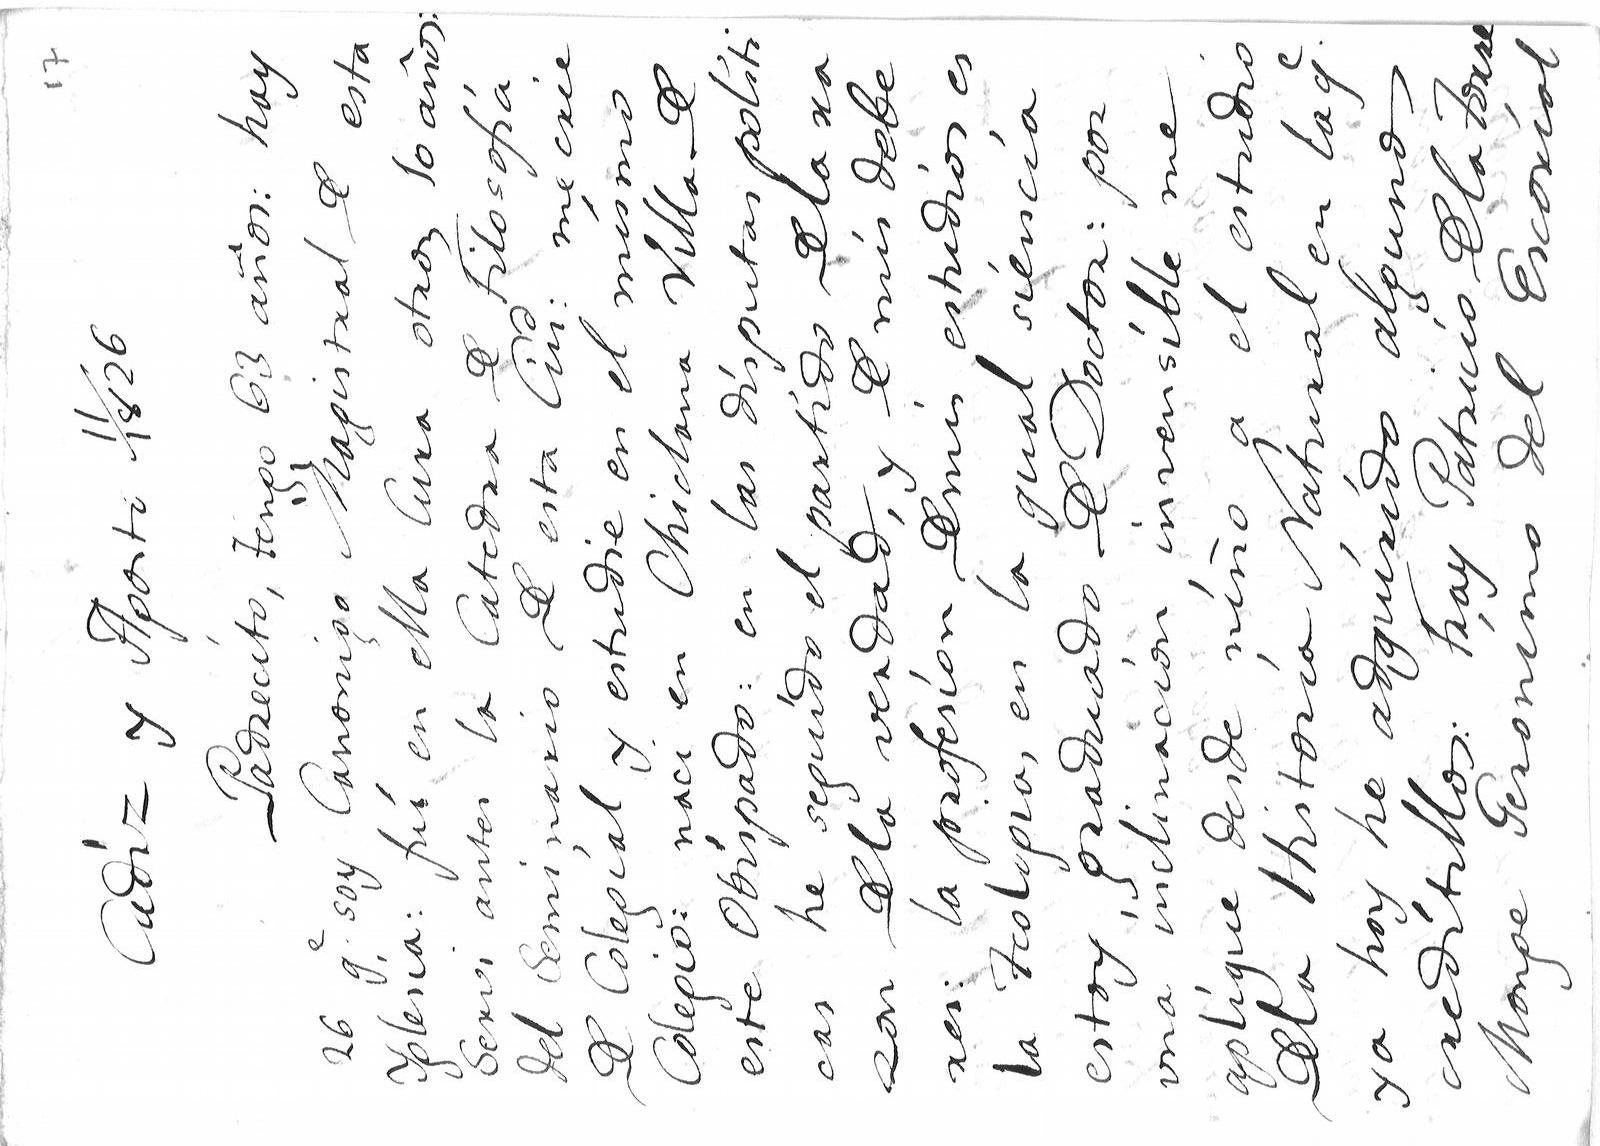 17
Cadíz y Agosti 11/1826
Padrecito, tengo 63 años: hoy
26 q.e soy Canonigo Magistral de esta
Yglesia: fuí en ella Cura otros 10 años:
Servi antes la Catedra de Filosofía
del Seminario de esta Ciud: me crie
de Colegíal y estudie en el mismo
Colegio: naci en Chiclana Villa de
este Obíspado: en las dísputas políti
cas he seguído el partído dela ra
zon dela verdad, y de mis debe
res: la profesíon de mis estudíos es
la Teologia, en la qual síencía
estoy graduado de Doctor: por
una inclinacíon invensíble me
aplíque desde níño a el estudio
dela Hhistoría Natural en la q.e
ya hoy he adquírído algunos
credítillos: háy Patricio dela Torre
Monge Geronimo del Escoríal